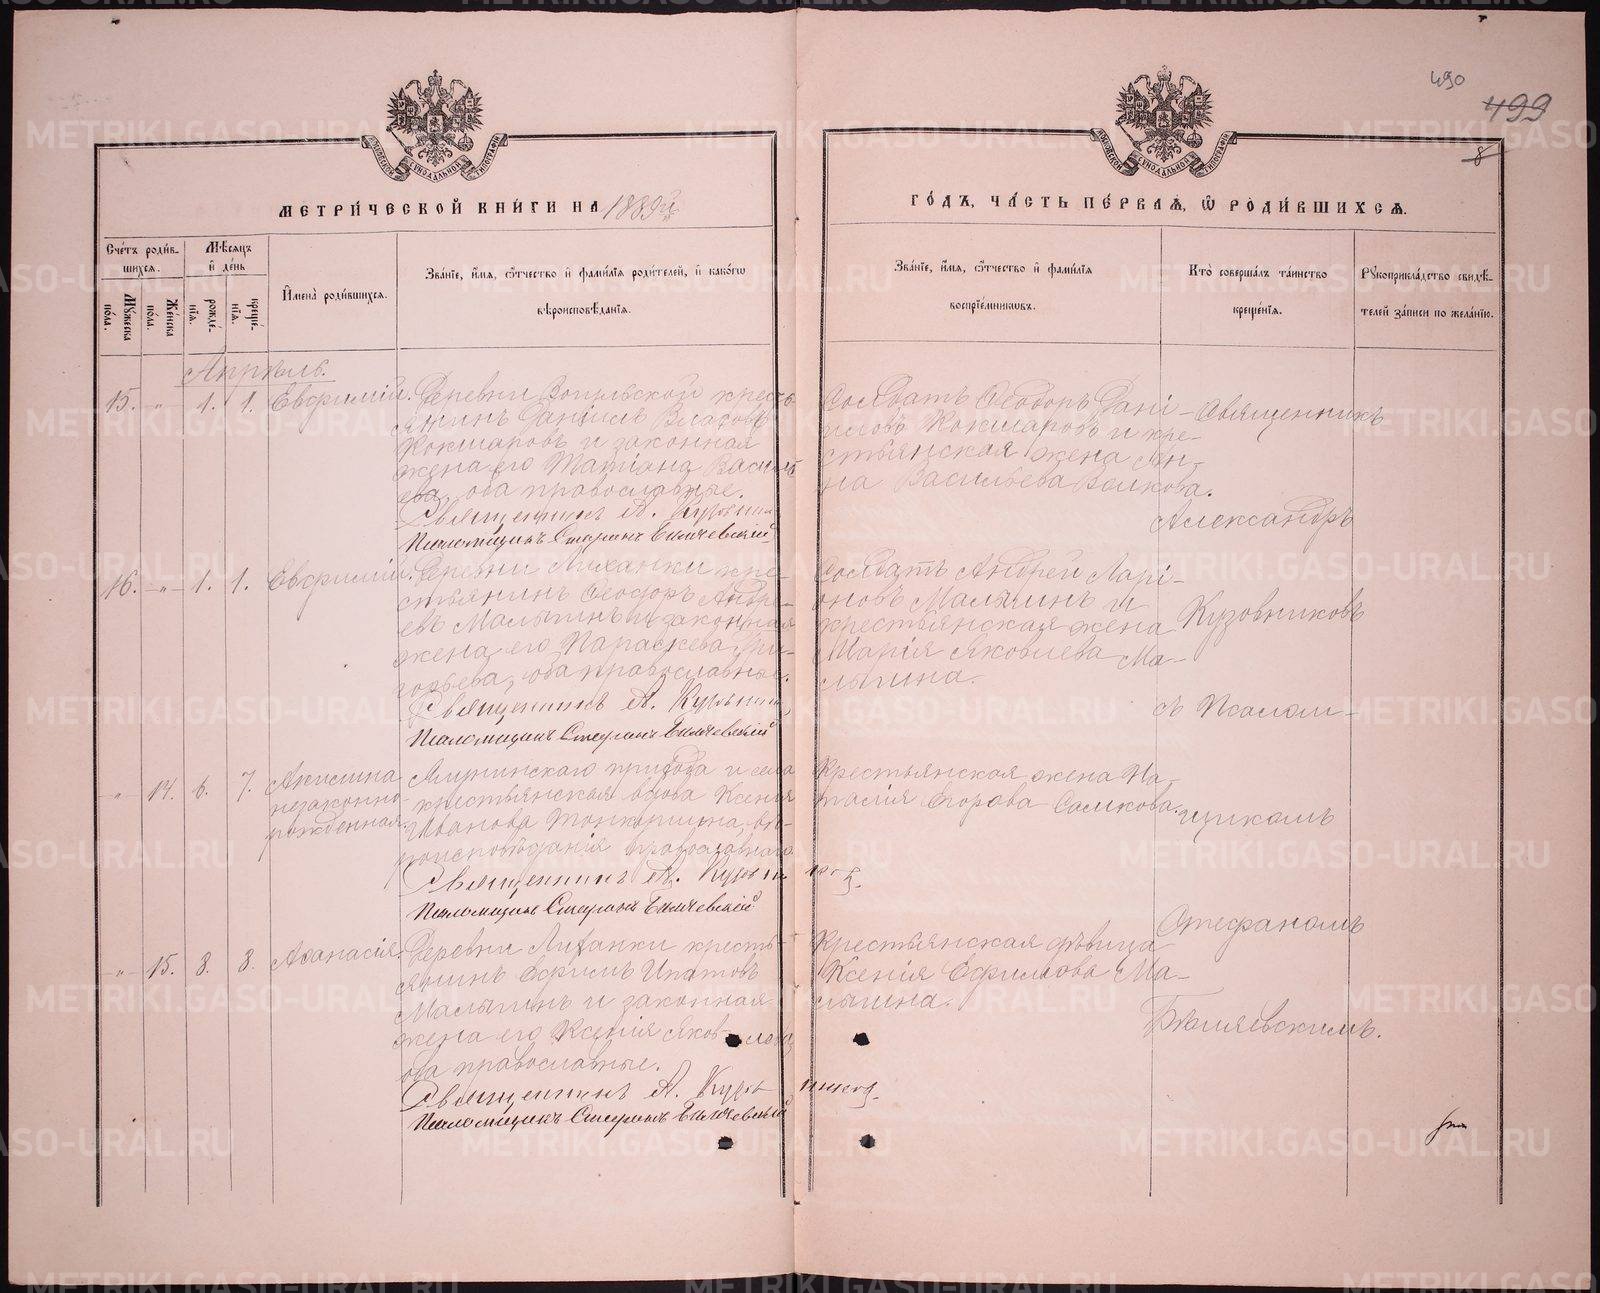 490
499
8
МЕТРИ́ЧЕСКОЙ КНИ́ГИ НА 1889й
ГО́ДЪ, ЧА́СТЬ ПЕ́РВАѦ, Ѿ РОДИ́ВШИХСѦ.
Сче́тъ роди́вшихся.
Мѣ́сяцъ и де́нь
Имена̀ роди́вшихся.
Зва́нїе, и́мя, ѻ́тчество и фами́лїя роди́телей, и како́гѡ
вѣроисповѣ́данїя.
Зва́нїе, и́мя, ѻ́тчество и фами́лїя
воспрїе́мниковъ.
Кто̀ соверша́лъ та́инство
креще́нїя.
Рꙋкоприкла́дство свидѣ́-
телей за́писи по жела́нїю.
Мꙋ́жеска по́ла.
Же́нска по́ла.
рожде́нїя.
креще́нїя.
Апрѣль.
15. " 1. 1. Евфимій.
Деревни
кресть-
янинъ Даніилъ Власовъ
Кокшаровъ и законная
жена его Татіана Василь-
ева, оба православные.
Священникъ А.
Псаломщикъ Стефанъ Бѣляевскій
Солдатъ Ѳеодоръ Дані-
иловъ Кокшаровъ и кре-
стьянская жена Ан-
на Васильева Волкова.
Священникъ
Александръ
16. " 1. 1. Евфимій.
Деревни Лиханки кре-
стьянинъ Ѳеодоръ Андре-
евъ Малыгинъ и законная
жена его Параскева Гри-
горьева, оба православные.
Священникъ А.
Псаломщикъ Стефанъ Бѣляевскій
Солдатъ Андрей Ларі-
оновъ Малыгинъ и
крестьянская жена
Марія Яковлева Ма-
лыгина.
Кузовниковъ
съ Псалом-
" 14. 6. 7. Акилина
незаконно-
рожденная.
прихода и села
крестьянская вдова Ксенія
Иванова
вѣ-
роисповѣданія православнаго
Священникъ А.
Псаломщикъ Стефанъ Бѣляевскій
Крестьянская жена На-
талія Егорова
щикомъ
Стефаномъ
" 15. 8. 8. Аѳанасія.
Деревни Лиханки кресть-
янинъ Ефимъ Ипатовъ
Малыгинъ и законная
жена его Ксенія Яковлева,
оба православные.
Священникъ А.
Псаломщикъ Стефанъ Бѣляевскій
Крестьянская дѣвица
Ксенія Ефимова Ма-
лыгина.
Бѣляевскимъ.
METRIKI.GASO-URAL.RU